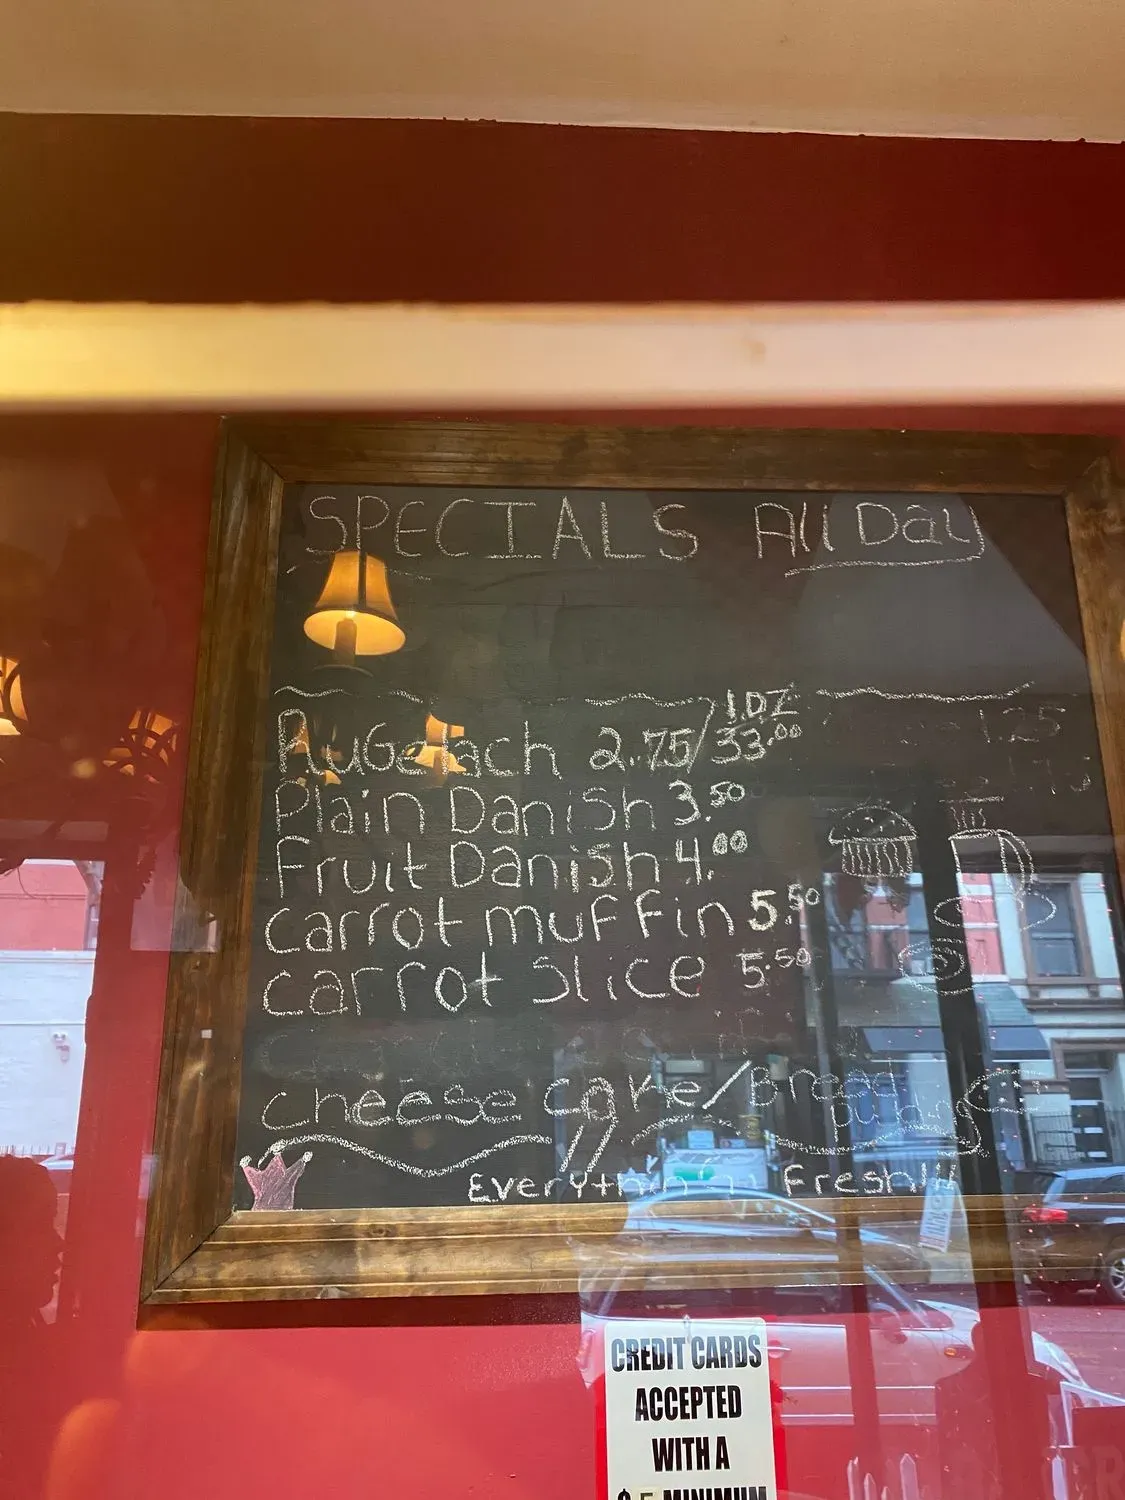 SPECIALS All Day
Rugelach 2.75/1.DZ 33.00
Plain Danish 3.50
Fruit Danish 4.00
carrot muffin 5.50
carrot slice 5.50
cheese cake/Bread pudding
Everything Fresh!!!
1.25
CREDIT CARDS
ACCEPTED
WITH A
$5 MINIMUM